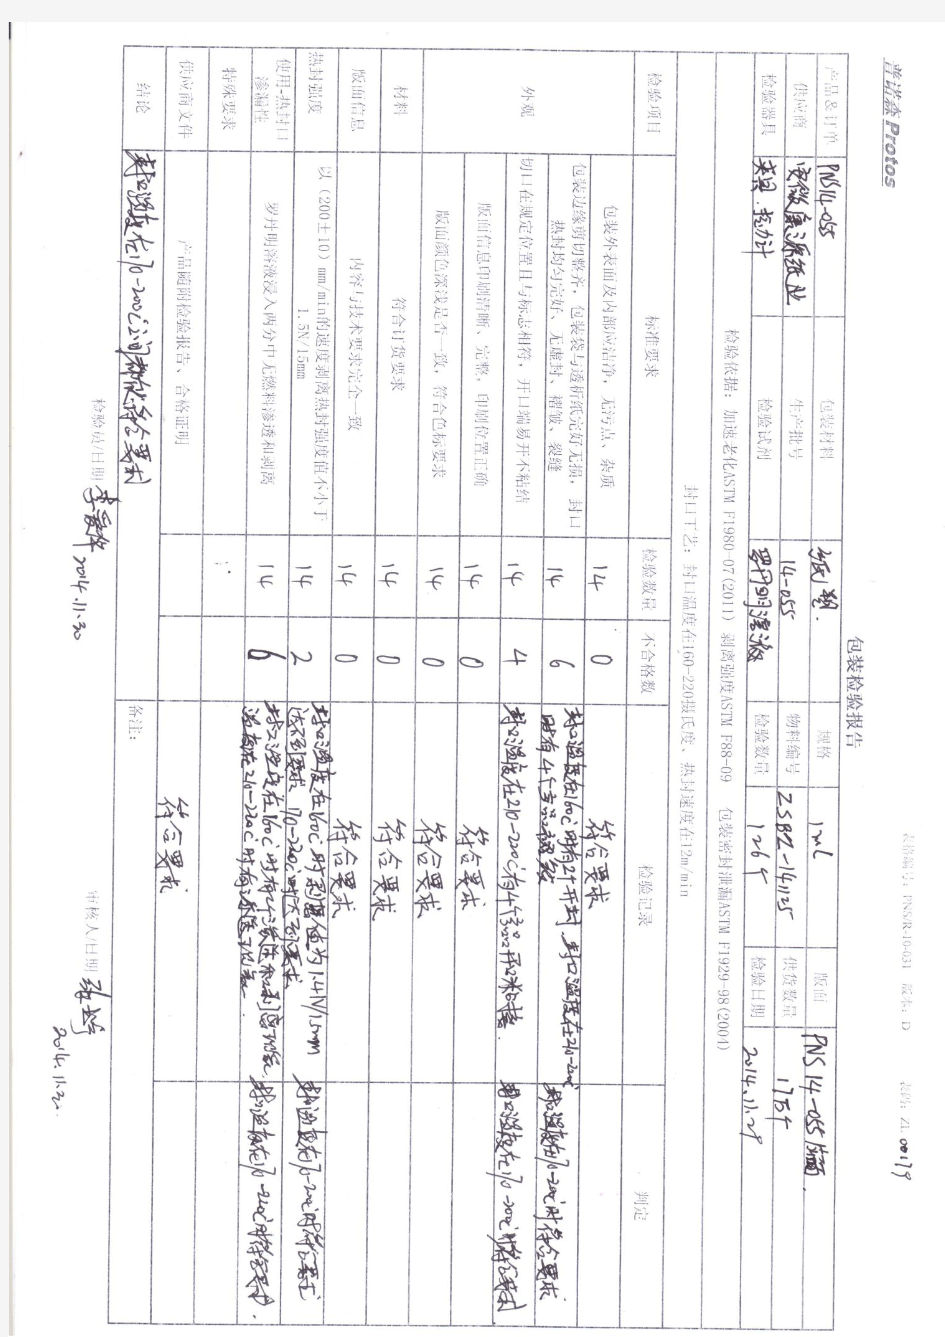 普诺森 Protos
表格编号: PNS/R-10-031 版本: D 表码: ZL 00179
包装检验报告
产品&订单 PNS14-055 包装材料 纸塑. 规格 1ml 版面 PNS14-055
供应商 生产批号 14-055 物料编号 ZSBZ-141125 供货数量 17万个
检验器具 夹具. 拉力计 检验试剂 罗丹明溶液 检验数量 126个 检验日期 2014.11.29
检验依据: 加速老化ASTM F1980-07(2011) 剥离强度ASTM F88-09 包装密封泄漏ASTM F1929-98(2004)
封口工艺: 封口温度在160-220摄氏度、热封速度在12m/min
检验项目 标准要求 检验数量 不合格数 检验记录 判定
外观
包装外表面及内部应洁净, 无污点、杂质 14 0 符合要求
包装边缘剪切整齐, 包装袋与透析纸完好无损, 封口
热封均匀完好、无虚封、褶皱、裂缝 14 6 封口温度在160℃时有2个开封, 封口温度在210-220℃
时有4个 封口温度在170-200℃时符合要求
切口在规定位置且与标志相符, 开口端易开不粘结 14 4 封口温度在210-220℃有4个 封口温度在170-200℃时符合要求
版面信息印刷清晰、完整, 印刷位置正确 14 0 符合要求
版面颜色深浅是否一致, 符合色标要求 14 0 符合要求
材料 符合订货要求 14 0 符合要求
版面信息 内容与技术要求完全一致 14 0 符合要求
热封强度 以(200±10)mm/min的速度剥离热封强度值不小于
1.5N/15mm 14 2 封口温度在160℃时剥离值为1.4N/15mm
达不到要求, 170-220℃时 要求 封口温度在170-200℃时符合要求
使用-热封口
渗漏性 罗丹明溶液浸入两分中无燃料渗透和剥离 14 6 封口温度在160℃时有2个渗透和剥离现象,
温度在210-220℃时有 封口温度在170-200℃时符合要求.
特殊要求
供应商文件 产品随附检验报告、合格证明 符合要求
结论 封口温度在170-200℃之间 符合要求 备注:
检验员/日期 2014.11.30 审核人/日期 2014.11.30.